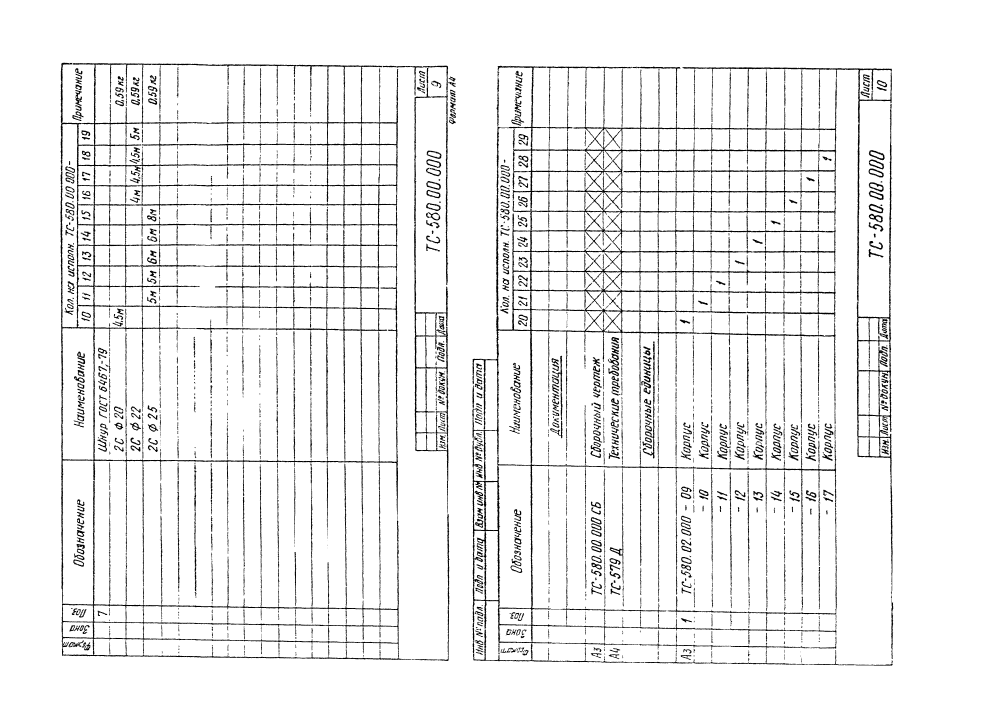 Формат Зона Поз. Обозначение Наименование Кол. на исполн. ТС-580.00.000- Примечание
10 11 12 13 14 15 16 17 18 19
7 Шнур ГОСТ 6467-79
2С Ф 20 4.5м 0.59 кг
2С Ф 22 4м 4.5м 4.5м 5м 0.59 кг
2С Ф 25 5м 5м 6м 6м 8м 0.59 кг
Изм Лист № докум. Подп. Дата
ТС-580.00.000
Лист
9
Формат А4
Инв № подл. Подп. и дата Взам инв № Инв № дубл. Подп и дата
Формат Зона Поз. Обозначение Наименование Кол. на исполн. ТС-580.00.000- Примечание
20 21 22 23 24 25 26 27 28 29
Документация
А3 ТС-580.00.000 СБ Сборочный чертеж
А4 ТС-579 Д Технические требования
Сборочные единицы
А3 1 ТС-580.02.000 - 09 Корпус 1
- 10 Корпус 1
- 11 Корпус 1
- 12 Корпус 1
- 13 Корпус 1
- 14 Корпус 1
- 15 Корпус 1
- 16 Корпус 1
- 17 Корпус 1
Изм Лист № докум Подп. Дата
ТС-580.00.000
Лист
10